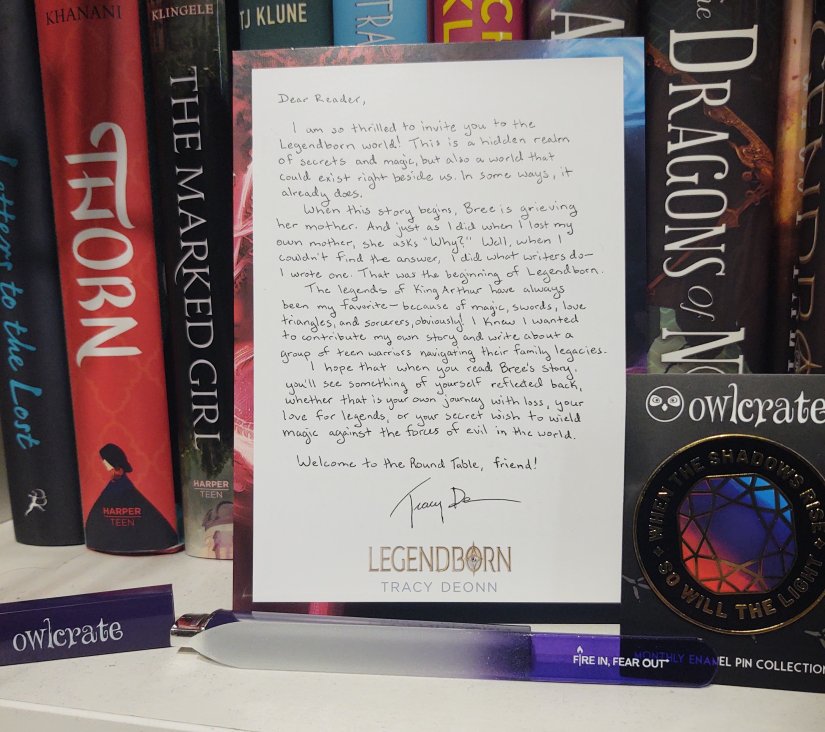 KHANANI
THORN
HARPER
TEEN
Letters to the Lost
KLINGELE
THE MARKED GIRL
HARPER
TEEN
TJ KLUNE
The
DRAGONS of
Dear Reader,
I am so thrilled to invite you to the
Legendborn world! This is a hidden realm
of secrets and magic, but also a world that
could exist right beside us. In some ways, it
already does.
When this story begins, Bree is grieving
her mother. And just as I did when I lost my
own mother, she asks "Why?" Well, when I
couldn't find the answer, I did what writers do—
I wrote one. That was the beginning of Legendborn.
The legends of King Arthur have always
been my favorite— because of magic, swords, love
triangles, and sorcerers, obviously! I knew I wanted
to contribute my own story and write about a
group of teen warriors navigating their family legacies.
I hope that when you read Bree's story,
you'll see something of yourself reflected back,
whether that is your own journey with loss, your
love for legends, or your secret wish to wield
magic against the forces of evil in the world.
Welcome to the Round Table, friend!
Tracy Deonn
LEGENDBORN
TRACY DEONN
owlcrate
WHEN THE SHADOWS RISE
SO WILL THE LIGHT
MONTHLY ENAMEL PIN COLLECTION
owlcrate
FIRE IN, FEAR OUT